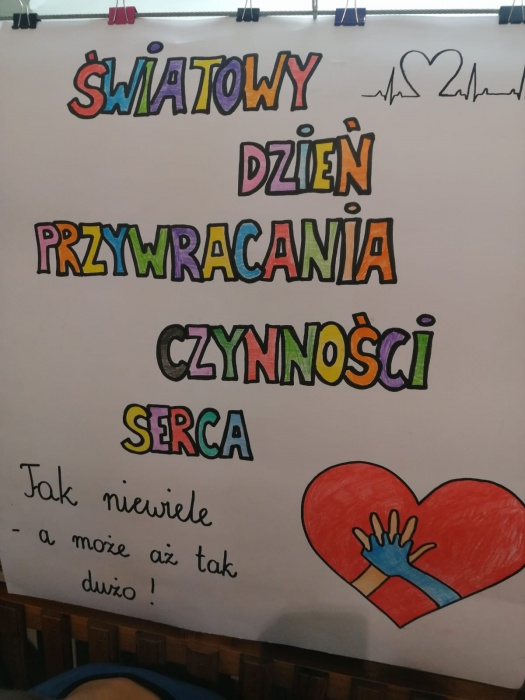 ŚWIATOWY
DZIEŃ
PRZYWRACANIA
CZYNNOŚCI
SERCA
Tak niewiele
- a może aż tak
dużo!